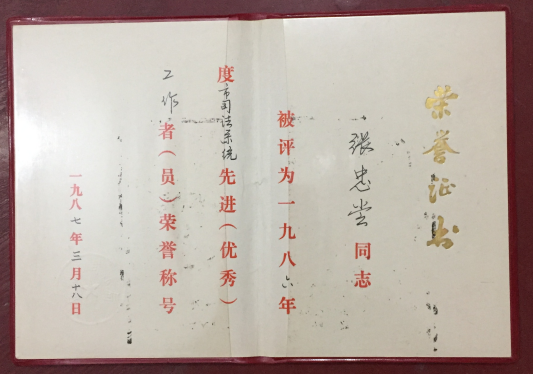 荣誉证书
张忠堂同志
被评为一九八六年
度市司法系统先进(优秀)
工作者(员)荣誉称号
一九八七年三月十八日